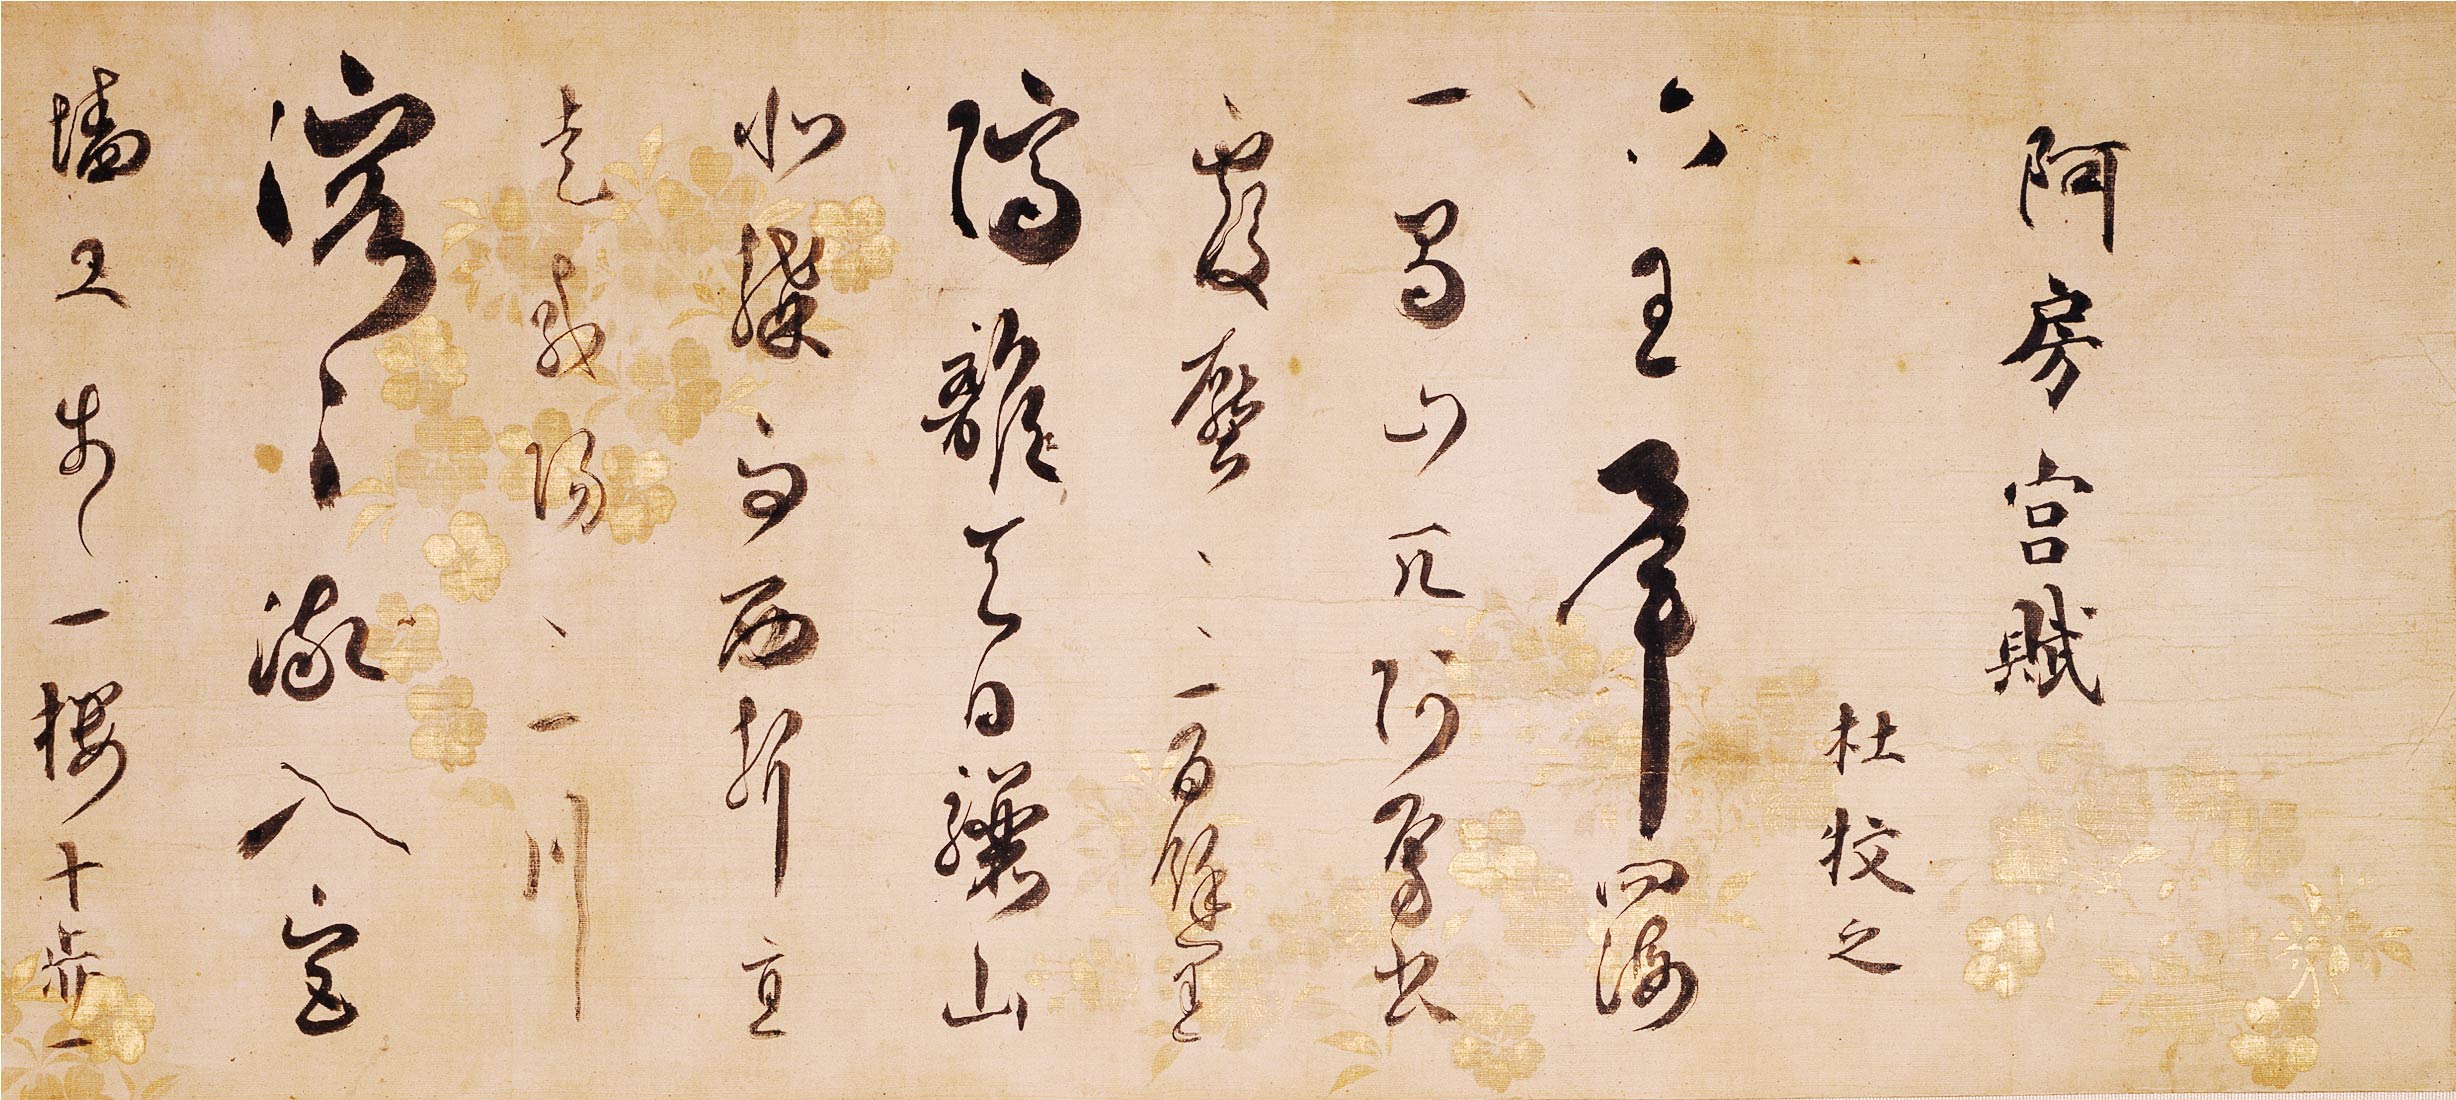 阿房宮賦
杜牧之
六王畢四海
一蜀山兀阿房出
覆壓三百餘里
隔離天日驪山
北構而西折直
走咸陽二川
溶〻流入宮
墻五步一樓十步一